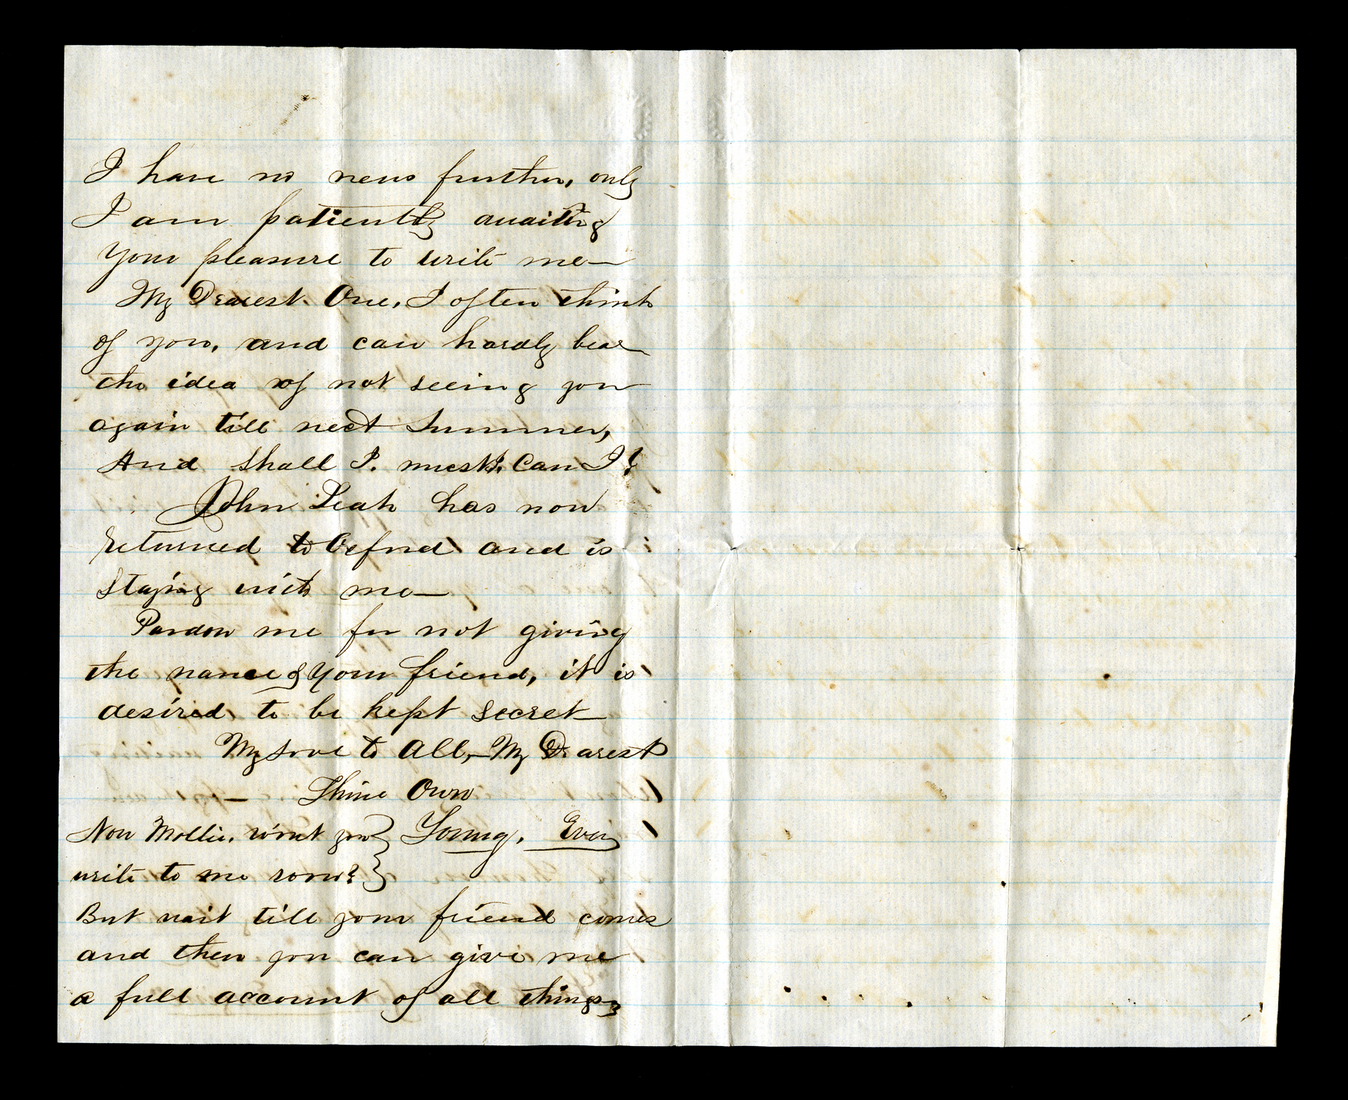 I have no news further, only
I am patiently awaiting
your pleasure to write me—
My Dearest One, I often think
of you, and can hardly bear
the idea of not seeing you
again till next Summer,
And Shall I. must I. Can I?
John Leah has now
returned to Oxford and is
staying with me—
Pardon me for not giving
the name of your friend, it is
desired to be kept secret—
My Love to All,—My Dearest
Thine Own
Now Mollie, wont you } Young. Ever
write to me soon? }
But wait till your friend comes
and then you can give me
a full account of all things